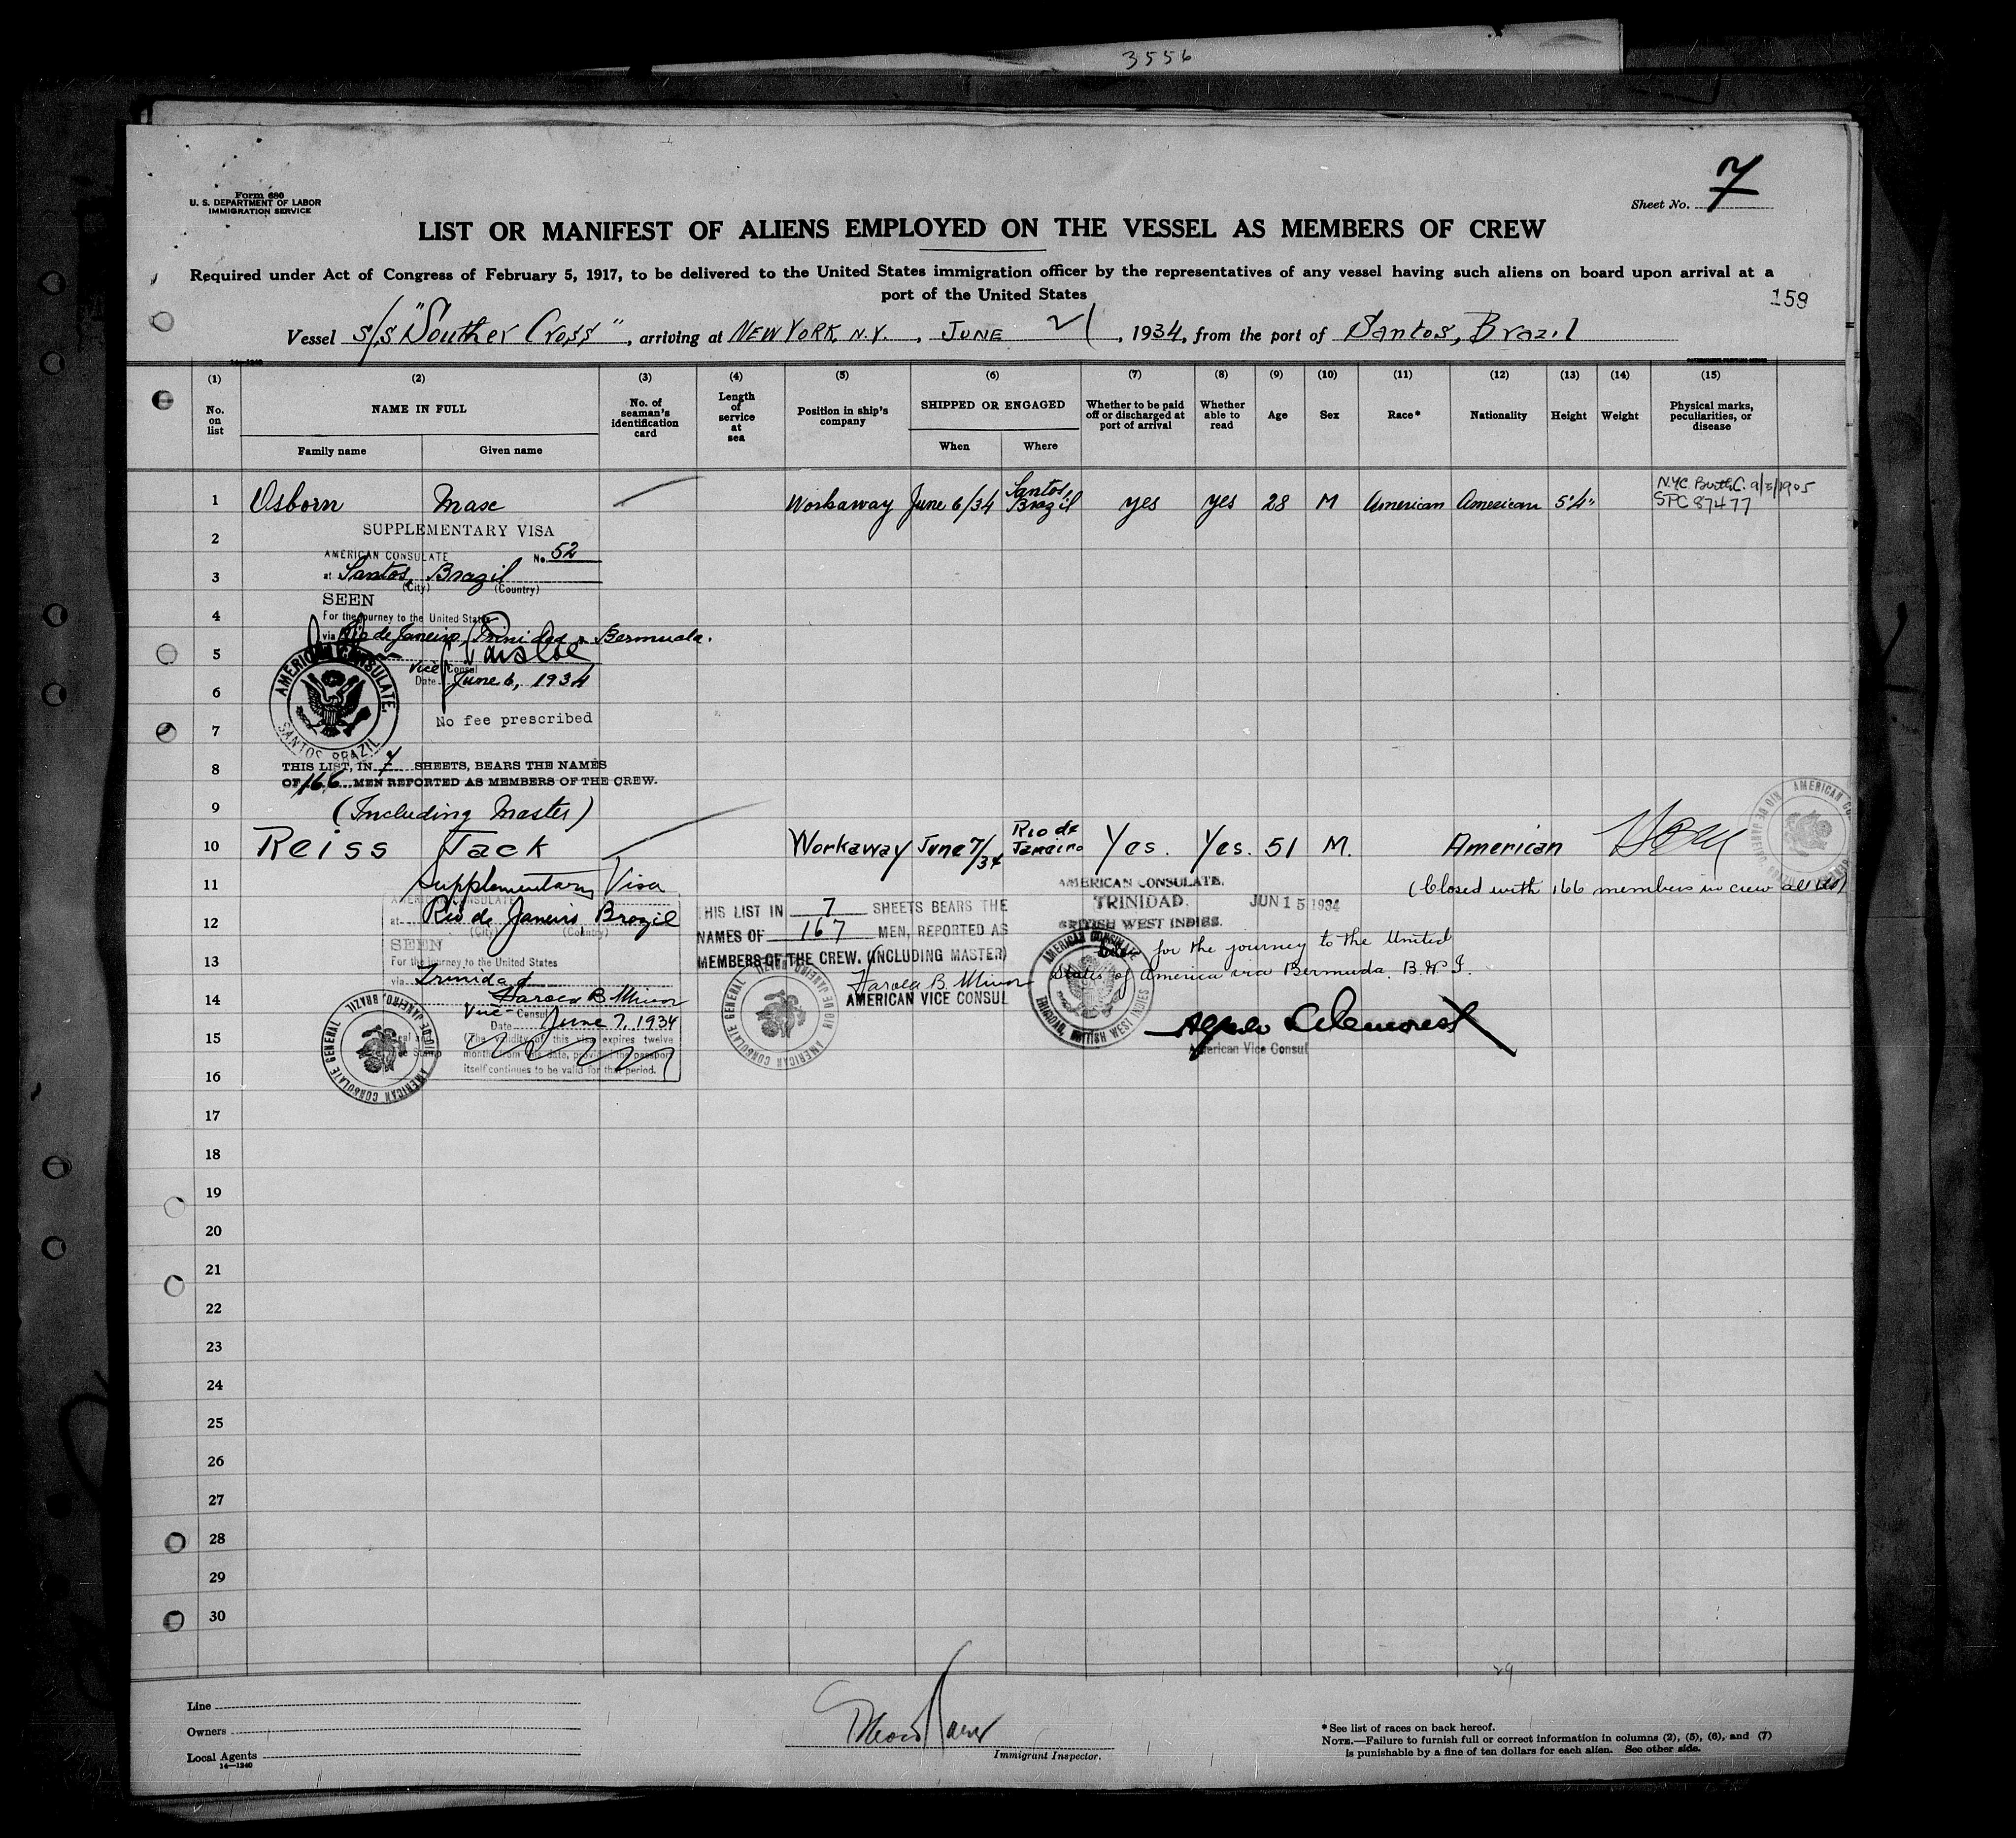 3556
Form 680
U. S. DEPARTMENT OF LABOR
IMMIGRATION SERVICE
Sheet No. 7
LIST OR MANIFEST OF ALIENS EMPLOYED ON THE VESSEL AS MEMBERS OF CREW
Required under Act of Congress of February 5, 1917, to be delivered to the United States immigration officer by the representatives of any vessel having such aliens on board upon arrival at a
port of the United States
159
Vessel S/S "Souther Cross", arriving at NEW YORK, N.Y., JUNE 21, 1934, from the port of Santos, Brazil
14-1240
(1) (2) (3) (4) (5) (6) (7) (8) (9) (10) (11) (12) (13) (14) (15)
No. on list
NAME IN FULL
Family name
Given name
No. of seaman's identification card
Length of service at sea
Position in ship's company
SHIPPED OR ENGAGED
When
Where
Whether to be paid off or discharged at port of arrival
Whether able to read
Age
Sex
Race*
Nationality
Height
Weight
Physical marks, peculiarities, or disease
1 Osborn Mase Workaway June 6/34 Santos, Brazil yes yes 28 M American American 5'4" N.Y.C. Birth C. 9/5/1905
SPC 87477
SUPPLEMENTARY VISA
2
AMERICAN CONSULATE No. 52
3 at Santos, Brazil
(City) (Country)
SEEN
4 For the journey to the United States
via Rio de Janeiro, Trinidad & Bermuda.
5
Vice Consul
6 Date June 6, 1934
AMERICAN CONSULATE, SANTOS BRAZIL
7 No fee prescribed
8 THIS LIST, IN 7 SHEETS, BEARS THE NAMES
OF 166 MEN REPORTED AS MEMBERS OF THE CREW.
9 (Including Master)
10 Reiss Jack Workaway June 7/34 Rio de Janeiro Yes. Yes. 51 M. American
AMERICAN CO RIO DE JANEIRO, BRAZIL
11 Supplementary Visa
(Closed with 166 members in crew
AMERICAN CONSULATE
12 at Rio de Janeiro, Brazil
(City) (Country)
SEEN
13 For the journey to the United States
via Trinidad
14 Harold B. Minor
Vice-Consul
Date June 7, 1934
15 (The validity of this visa expires twelve
months from this date, provided the passport
16 itself continues to be valid for that period.
AMERICAN CONSULATE GENERAL RIO DE JANEIRO, BRAZIL
THIS LIST IN 7 SHEETS BEARS THE
NAMES OF 167 MEN, REPORTED AS
MEMBERS OF THE CREW. (INCLUDING MASTER)
Harold B. Minor
AMERICAN VICE CONSUL
AMERICAN CONSULATE GENERAL RIO DE JANEIRO, BRAZIL
AMERICAN CONSULATE.
TRINIDAD, JUN 15 1934
BRITISH WEST INDIES.
for the journey to the United
States of America via Bermuda. B.W.I.
AMERICAN CONSULATE TRINIDAD, BRITISH WEST INDIES
American Vice Consul
17
18
19
20
21
22
23
24
25
26
27
28
29
30
29
Line
Owners
Local Agents
14-1240
Immigrant Inspector.
*See list of races on back hereof.
NOTE.—Failure to furnish full or correct information in columns (2), (5), (6), and (7)
is punishable by a fine of ten dollars for each alien. See other side.